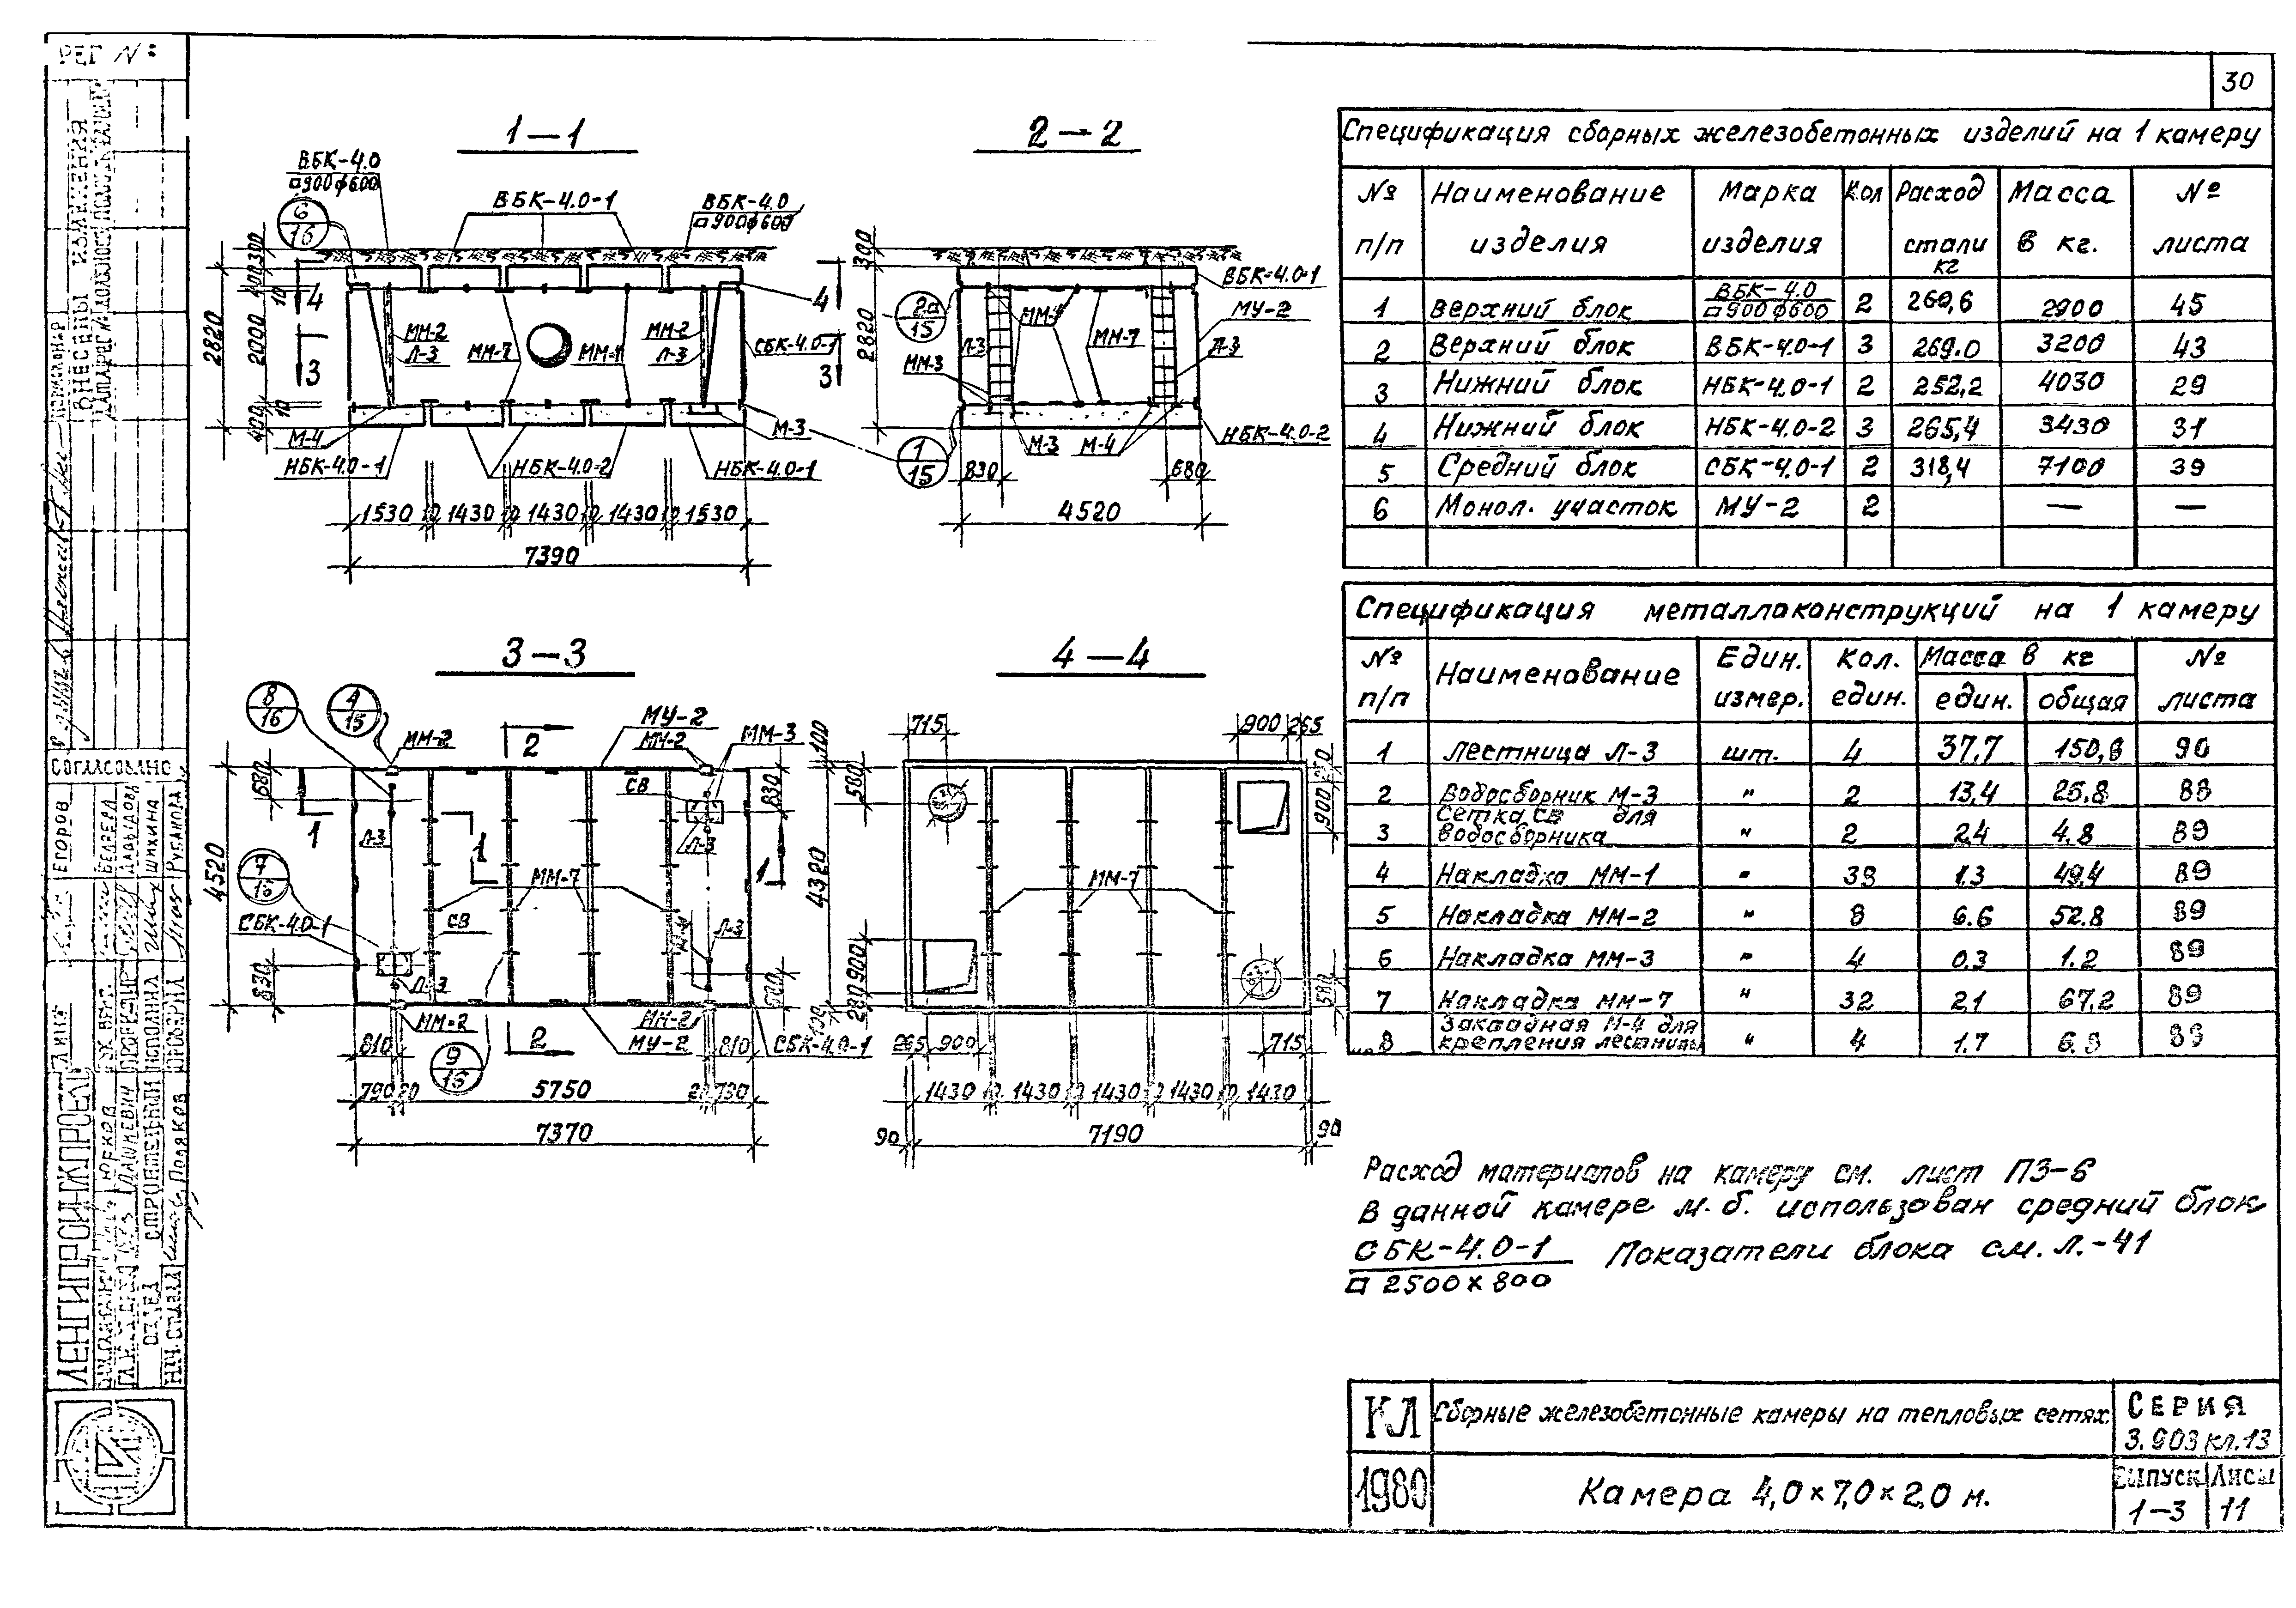 РЕГ №:
30
1—1
2—2
ВБК-4.0
□900ф600
ВБК-4.0-1
ВБК-4.0
□900ф600
6
16
300
400
10
2000
10
400
2820
4
3
4
3
ММ-2
Л-3
ММ-7
ММ-2
Л-3
СБК-4.0-1
М-4
М-3
НБК-4.0-1
НБК-4.0-2
НБК-4.0-1
1530 10 1430 10 1430 10 1430 10 1530
7390
300
2820
ВБК-4.0-1
2а
15
МУ-2
ММ-7
Л-3
Л-3
ММ-3
М-3
М-4
НБК-4.0-2
1
15
830
680
4520
3—3
4—4
8
16
4
15
ММ-2
МУ-2
ММ-2
ММ-3
2
СВ
680
830
1
1
1
Л-3
Л-3
7
16
4520
ММ-7
СБК-4.0-1
СВ
Л-3
830
Л-3
ММ-2
ММ-2
МУ-2
СБК-4.0-1
810
9
16
2
810
790 20
5750
790
7370
715
900
265
100
580
900
4320
ММ-7
900
280
580
265
900
715
1430 10 1430 10 1430 10 1430 10 1430
90
7190
90
Спецификация сборных железобетонных изделий на 1 камеру
№ п/п Наименование изделия Марка изделия Кол Расход стали кг Масса в кг. № листа
1 Верхний блок ВБК-4.0 □900ф600 2 260,6 2900 45
2 Верхний блок ВБК-4.0-1 3 269.0 3200 43
3 Нижний блок НБК-4.0-1 2 252,2 4030 29
4 Нижний блок НБК-4.0-2 3 265,4 3430 31
5 Средний блок СБК-4.0-1 2 318,4 7100 39
6 Монол. участок МУ-2 2 — —
Спецификация металлоконструкций на 1 камеру
№ п/п Наименование Един. измер. Кол. един. Масса в кг един. общая № листа
1 Лестница Л-3 шт. 4 37.7 150,8 90
2 Водосборник М-3 " 2 13,4 26.8 88
3 Сетка СВ для водосборника " 2 2.4 4.8 89
4 Накладка ММ-1 " 38 1.3 49,4 89
5 Накладка ММ-2 " 8 6.6 52.8 89
6 Накладка ММ-3 " 4 0.3 1.2 89
7 Накладка ММ-7 " 32 2,1 67,2 89
8 Закладная М-4 для крепления лестницы " 4 1.7 6.8 88
Расход материалов на камеру см. лист ПЗ-6
В данной камере м.б. использован средний блок
СБК-4.0-1
□ 2500×800
Показатели блока см. л.-41
КЛ
Сборные железобетонные камеры на тепловых сетях
СЕРИЯ
3.903 кл.13
1980
Камера 4,0×7,0×2,0 м.
Выпуск
1-3
Лист
11
ВНЕСЕНЫ ИЗМЕНЕНИЯ
СОГЛАСОВАНО
ЕГОРОВ
ШИХИНА
ИСПОЛНИЛ
ПРОВЕРИЛ
ЮРКОВ
ПАШКЕВИЧ
ПОЛЯКОВ
ОТДЕЛ
СТРОИТЕЛЬНЫЙ
НАЧ. ОТДЕЛА
ЛЕНГИПРОИНЖПРОЕКТ